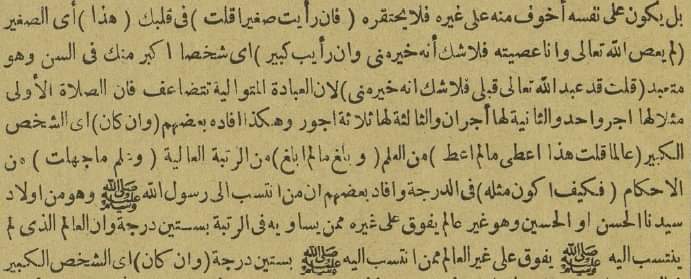 بل يكون على نفسه أخوف منه على غيره فلا يحتقره ( فان رأيت صغيرا قلت )فى قلبك ( هذا )أى الصغير
(لم يعص الله تعالى وانا عصيته فلا شك أنه خير منى وان رأيت كبيرا )اى شخصا اكبر منك فى السن وهو
متعبد(قلت قد عبد الله تعالى قبلى فلا شك انه خير منى)لان العبادة المتوالية تتضاعف فان الصلاة الأولى
مثلا لها اجر واحد والثانية لها أجران والثالثة لها ثلاثة اجور وهكذا افاده بعضهم(وان كان)اى الشخص
الكبير(عالما قلت هذا اعطى مالم اعط )من العلم( وبلغ مالم ابلغ)من الرتبة العالية ( وعلم ما جهلت ) من
الاحكام ( فكيف اكون مثله)فى الدرجة وافاد بعضهم ان من انتسب الى رسول الله ﷺ وهو من اولاد
سيدنا الحسن او الحسين وهو غير عالم يفوق على غيره ممن يساويه فى الرتبة بستين درجة وان العالم الذى لم
ينتسب اليه ﷺ يفوق على غير العالم ممن انتسب اليه ﷺ بستين درجة(وان كان)اى الشخص الكبير